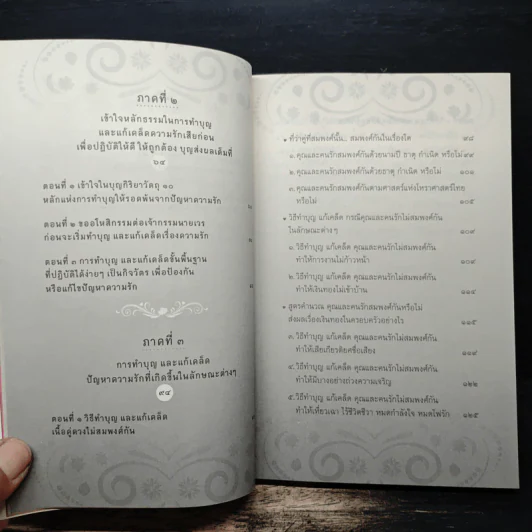 ภาคที่ ๒
เข้าใจหลักธรรมในการทำบุญ
และแก้เคล็ดความรักเสียก่อน
เพื่อปฏิบัติให้ดี ให้ถูกต้อง บุญส่งผลเต็มที่
๖๔
ตอนที่ ๑ เข้าใจในบุญกิริยาวัตถุ ๑๐
หลักแห่งการทำบุญให้รอดพ้นจากปัญหาความรัก
ตอนที่ ๒ ขออโหสิกรรมต่อเจ้ากรรมนายเวร
ก่อนจะเริ่มทำบุญ และแก้เคล็ดเรื่องความรัก
ตอนที่ ๓ การทำบุญ และแก้เคล็ดขั้นพื้นฐาน
ที่ปฏิบัติได้ง่ายๆ เป็นกิจวัตร เพื่อป้องกัน
หรือแก้ไขปัญหาความรัก
ภาคที่ ๓
การทำบุญ และแก้เคล็ด
ปัญหาความรักที่เกิดขึ้นในลักษณะต่างๆ
๙๔
ตอนที่ ๑ วิธีทำบุญ และแก้เคล็ด
เนื้อคู่ดวงไม่สมพงศ์กัน
• ที่ว่าคู่ที่สมพงศ์นั้น... สมพงศ์กันในเรื่องใด ๙๘
๑. คุณและคนรักสมพงศ์กันด้วยนามปี ธาตุ กำเนิด หรือไม่ ๙๙
๒. คุณและคนรักสมพงศ์กันด้วยธาตุ กำเนิด หรือไม่ ๑๐๑
๓. คุณและคนรักสมพงศ์กันตามศาสตร์แห่งโหราศาสตร์ไทย
หรือไม่ ๑๐๕
• วิธีทำบุญ แก้เคล็ด กรณีคุณและคนรักไม่สมพงศ์กัน
ในลักษณะต่างๆ ๑๐๙
๑. วิธีทำบุญ แก้เคล็ด คุณและคนรักไม่สมพงศ์กัน
ทำให้การงานไม่ก้าวหน้า ๑๐๙
๒. วิธีทำบุญ แก้เคล็ด คุณและคนรักไม่สมพงศ์กัน
ทำให้เงินทองไม่เข้าบ้าน ๑๑๔
• สูตรคำนวณ คุณและคนรักสมพงศ์กันหรือไม่
ส่งผลเรื่องเงินทองในครอบครัวอย่างไร ๑๑๕
๓. วิธีทำบุญ แก้เคล็ด คุณและคนรักไม่สมพงศ์กัน
ทำให้เสียเกียรติยศชื่อเสียง ๑๑๙
๔. วิธีทำบุญ แก้เคล็ด คุณและคนรักไม่สมพงศ์กัน
ทำให้มีบางอย่างถ่วงความเจริญ ๑๒๒
๕. วิธีทำบุญ แก้เคล็ด คุณและคนรักไม่สมพงศ์กัน
ทำให้เหี่ยวเฉา ไร้ชีวิตชีวา หมดกำลังใจ หมดไฟรัก ๑๒๕